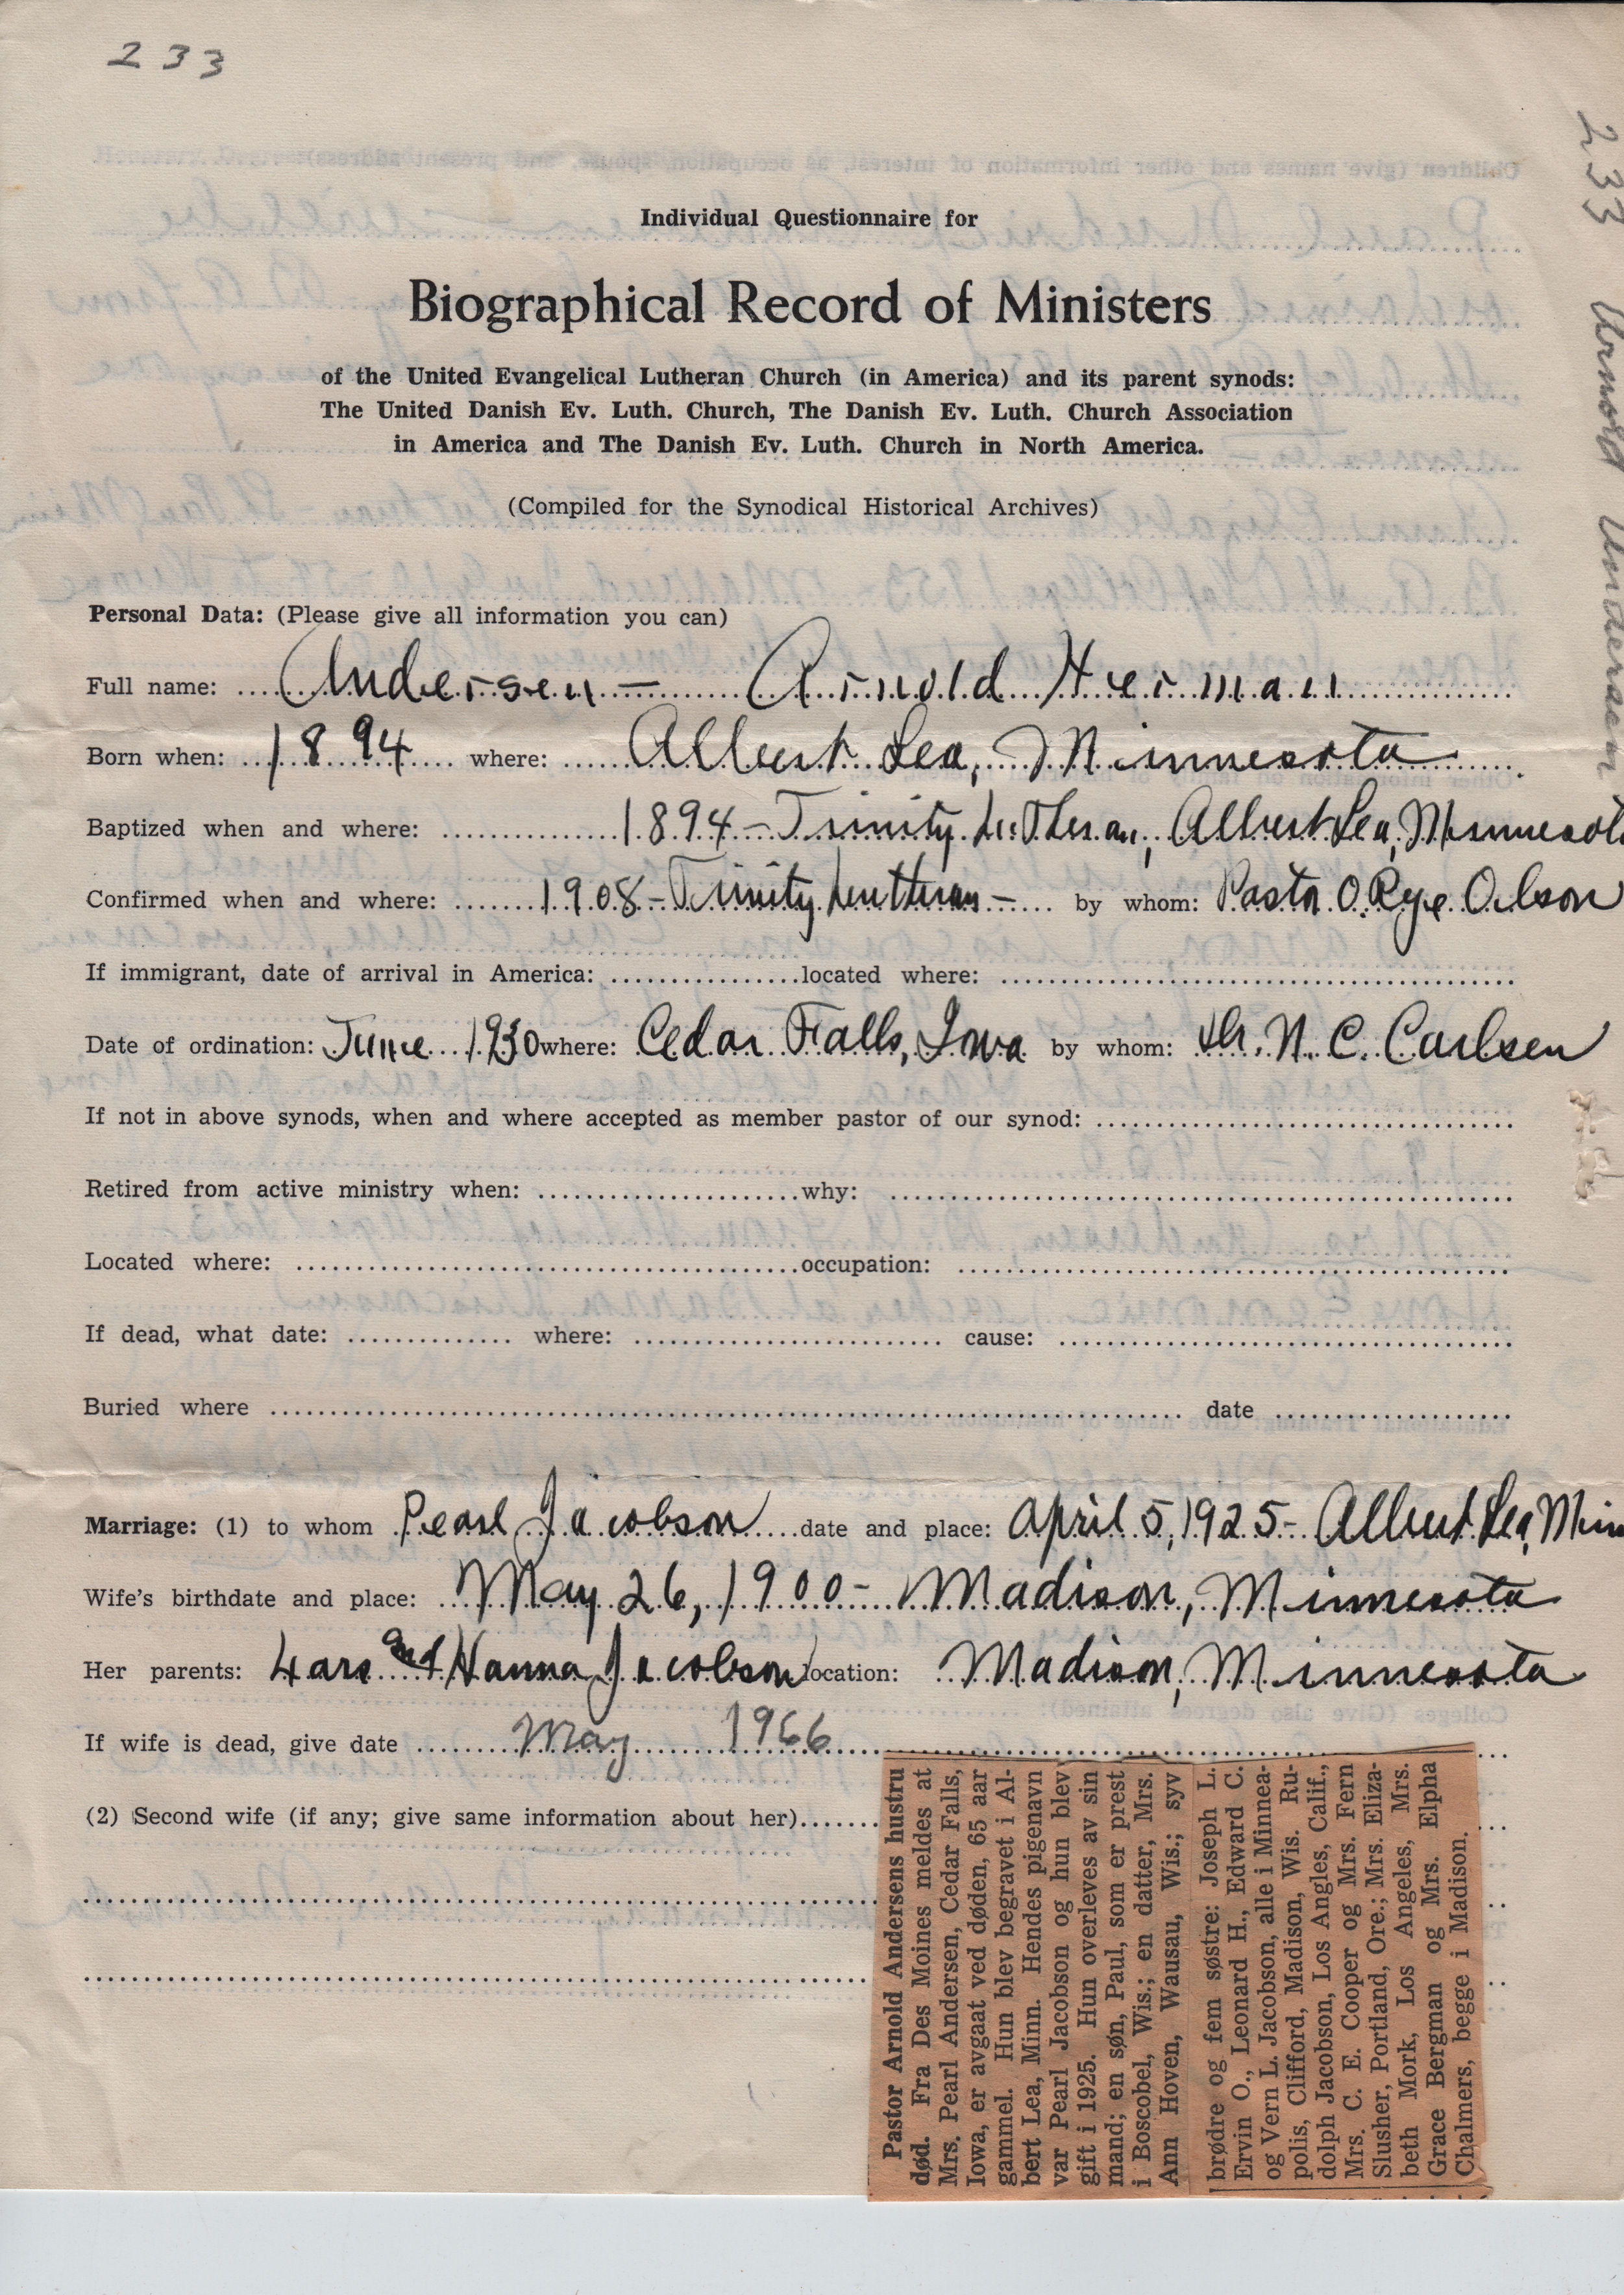 233
233 Arnold Andersen
Individual Questionnaire for
Biographical Record of Ministers
of the United Evangelical Lutheran Church (in America) and its parent synods:
The United Danish Ev. Luth. Church, The Danish Ev. Luth. Church Association
in America and The Danish Ev. Luth. Church in North America.
(Compiled for the Synodical Historical Archives)
Personal Data: (Please give all information you can)
Full name: Andersen - Arnold Herman
Born when: 1894 where: Albert Lea, Minnesota
Baptized when and where: 1894 - Trinity Lutheran, Albert Lea, Minnesota
Confirmed when and where: 1908 - Trinity Lutheran - by whom: Pastor O. Rye Olson
If immigrant, date of arrival in America: located where:
Date of ordination: June 1930 where: Cedar Falls, Iowa by whom: Dr. N. C. Carlsen
If not in above synods, when and where accepted as member pastor of our synod:
Retired from active ministry when: why:
Located where: occupation:
If dead, what date: where: cause:
Buried where date
Marriage: (1) to whom Pearl Jacobson date and place: April 5, 1925 - Albert Lea, Minn
Wife's birthdate and place: May 26, 1900 - Madison, Minnesota
Her parents: Lars and Hanna Jacobson location: Madison, Minnesota
If wife is dead, give date May 1966
(2) Second wife (if any; give same information about her)
Pastor Arnold Andersens hustru
død. Fra Des Moines meldes at
Mrs. Pearl Andersen, Cedar Falls,
Iowa, er avgaat ved døden, 65 aar
gammel. Hun blev begravet i Al-
bert Lea, Minn. Hendes pigenavn
var Pearl Jacobson og hun blev
gift i 1925. Hun overleves av sin
mand; en søn, Paul, som er prest
i Boscobel, Wis.; en datter, Mrs.
Ann Hoven, Wausau, Wis.; syv
brødre og fem søstre: Joseph L.
Ervin O., Leonard H., Edward C.
og Vern L. Jacobson, alle i Minnea-
polis, Clifford, Madison, Wis. Ru-
dolph Jacobson, Los Angles, Calif.,
Mrs. C. E. Cooper og Mrs. Fern
Slusher, Portland, Ore.; Mrs. Eliza-
beth Mork, Los Angeles, Mrs.
Grace Bergman og Mrs. Elpha
Chalmers, begge i Madison.